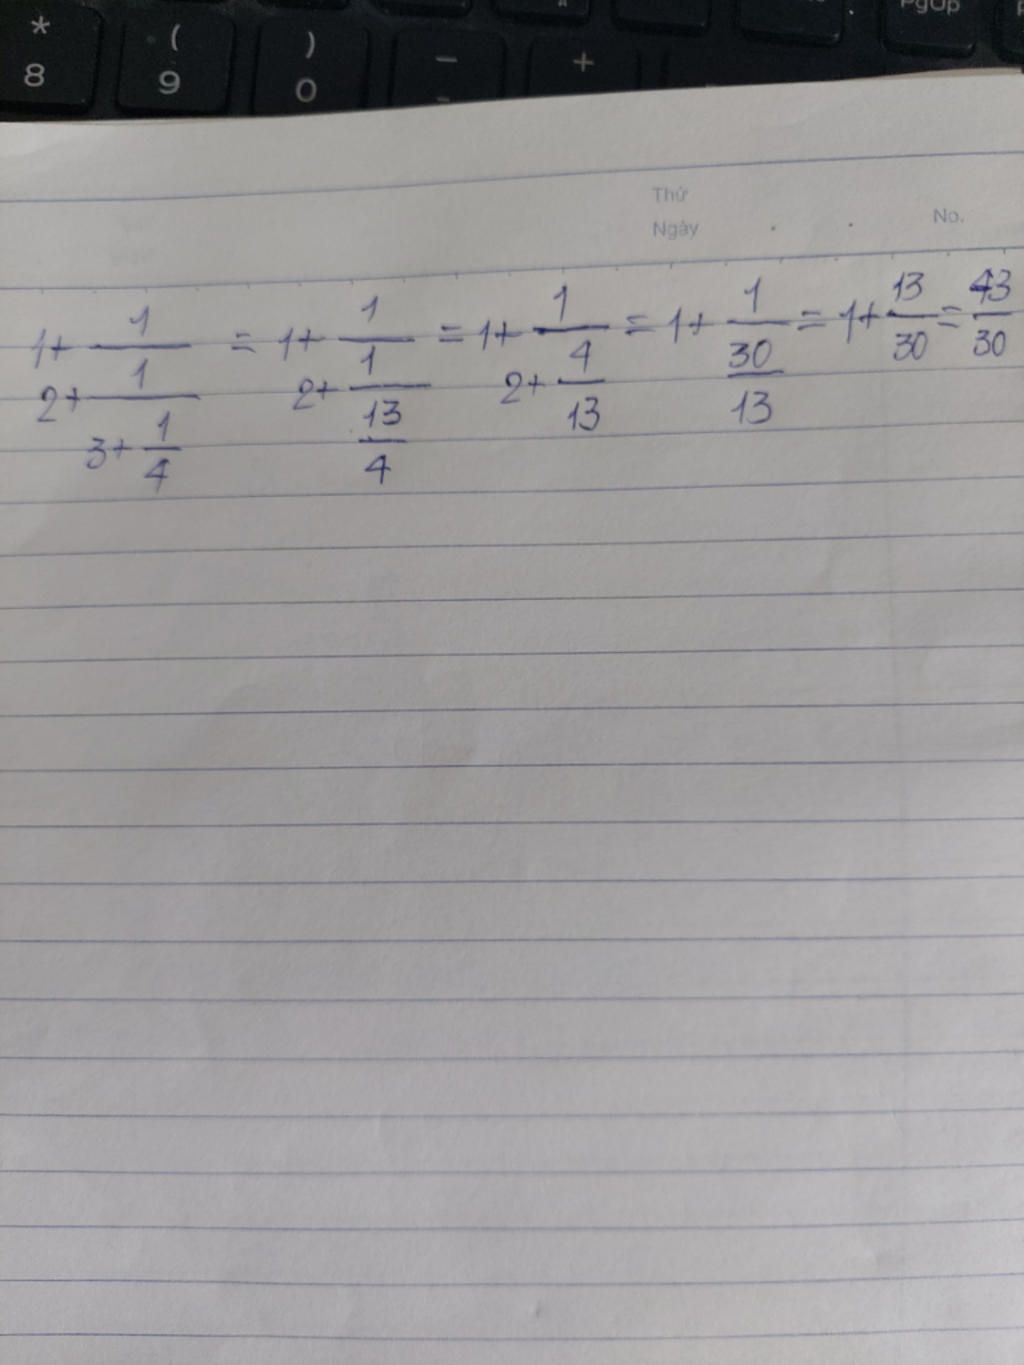 * ( ) − + PgUp
8 9 0
Thứ
Ngày No.
1+1/(2+1/(3+1/4)) = 1+1/(2+1/(13/4)) = 1+1/(2+4/13) = 1+1/(30/13) = 1+13/30 = 43/30